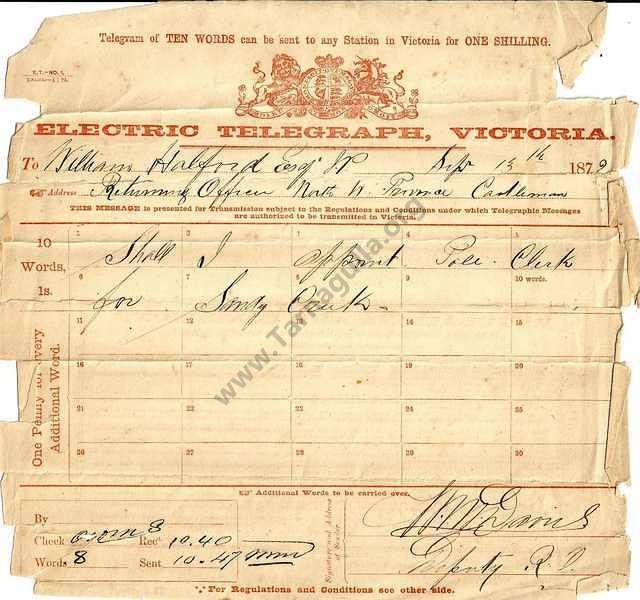 Telegram of TEN WORDS can be sent to any Station in Victoria for ONE SHILLING.
E.T.—NO. 1.
ELECTRIC TELEGRAPH, VICTORIA.
To William Halford Esqr JP Sep 13th 1879
Address Returning Officer North W. Province Castlemaine
THIS MESSAGE is presented for Transmission subject to the Regulations and Conditions under which Telegraphic Messages
are authorized to be transmitted in Victoria.
10 Words, 1s.
One Penny for every Additional Word.
1 2 3 4 5
Shall I appoint Poll Clerk
6 7 8 9 10 words.
for Sandy Creek
11 12 13 14 15
16 17 18 19 20
21 22 23 24 25
26 27 28 29 30
Additional Words to be carried over.
By
Check Rec'd 10.40
Words 8 Sent 10.47
Signature and Address of Sender.
Deputy R. O.
For Regulations and Conditions see other side.
www.Tarnagulla.org